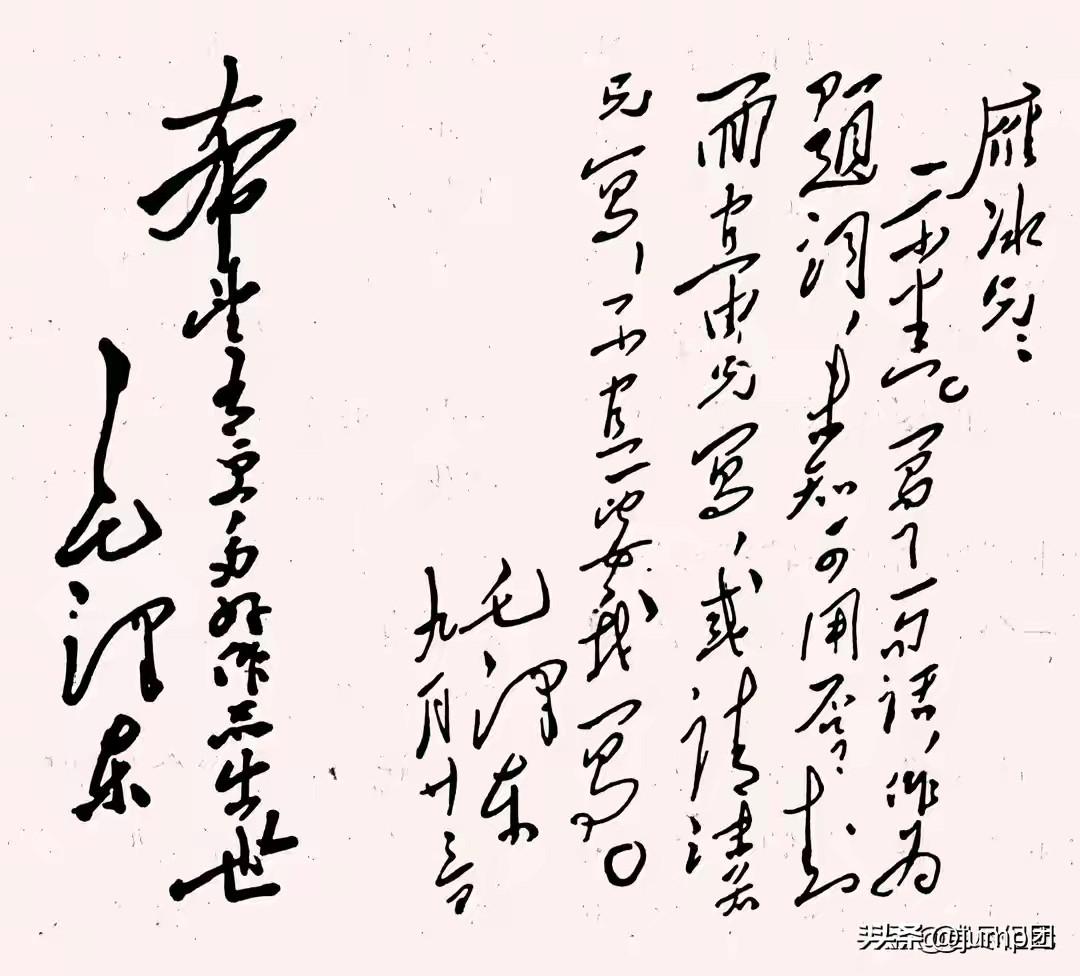 雁冰兄：
示悉。写了一句话，作为
题词，未知可用否？封
面宜由兄写，或请沫若
兄写，不宜要我写。
毛泽东
九月廿三日
希望有更多好作品出世
毛泽东
头条